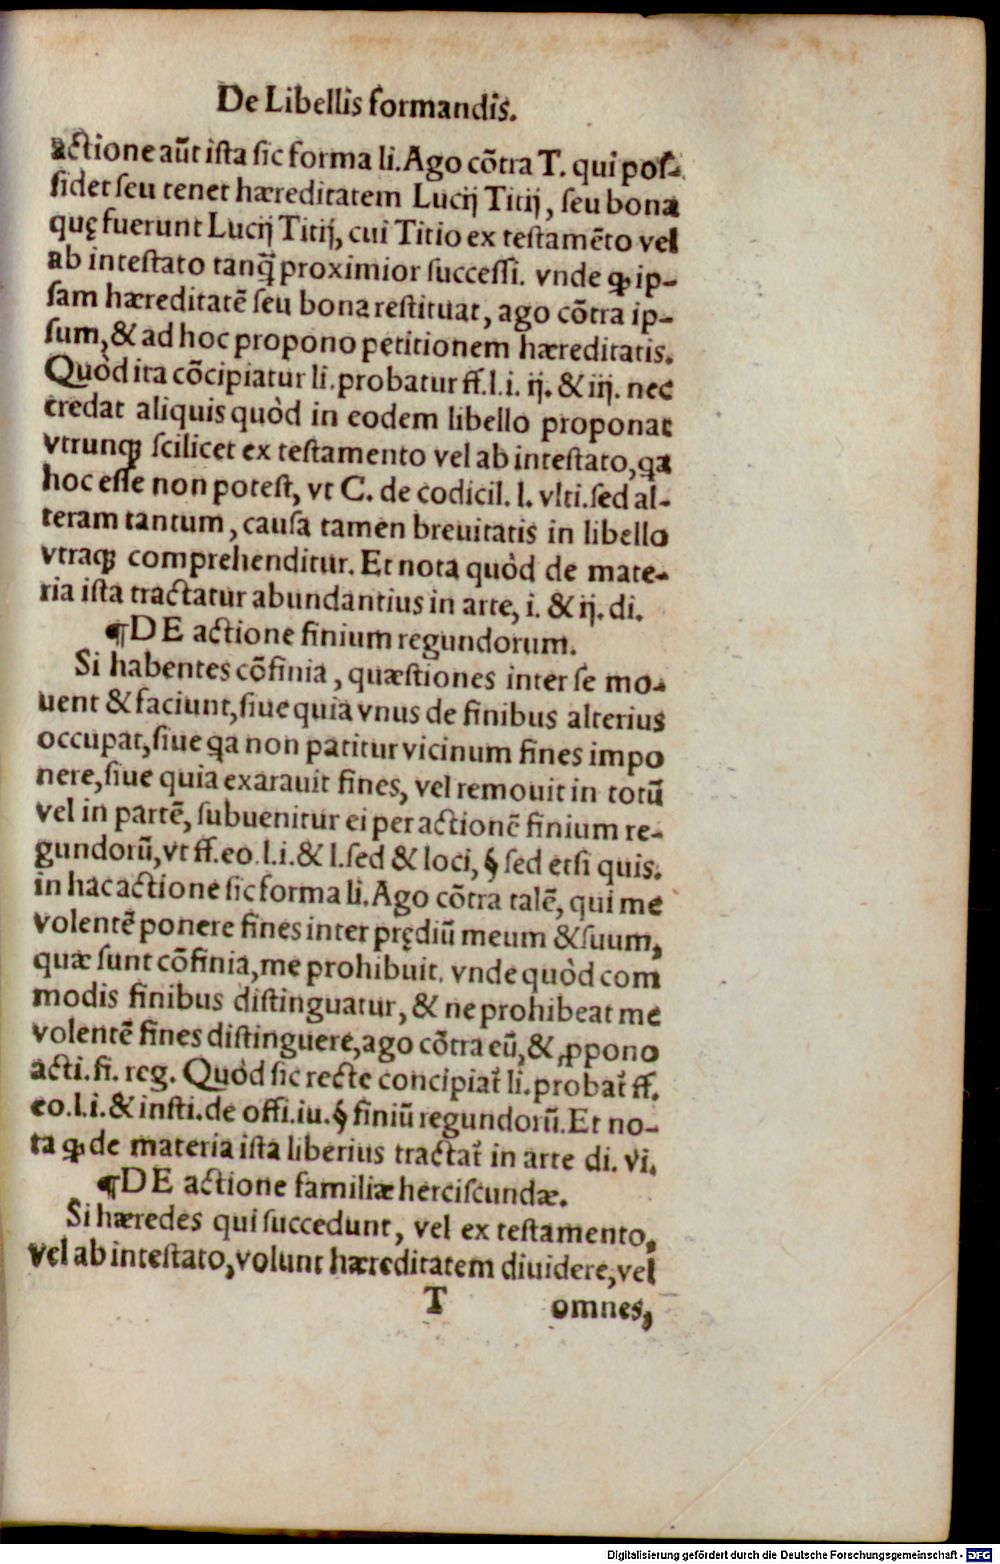 De Libellis formandis.
actione aũt ista sic forma li. Ago cõtra T. qui pos-
sidet seu tenet hæreditatem Lucij Titij, seu bona
quę fuerunt Lucij Titij, cui Titio ex testamẽto vel
ab intestato tanq̃ proximior successi. vnde ꝙ ip-
sam hæreditatẽ seu bona restituat, ago cõtra ip-
sum, & ad hoc propono petitionem hæreditatis.
Quòd ita cõcipiatur li. probatur ff. l. i. ij. & iij. nec
credat aliquis quòd in eodem libello proponat
vtrunqꝫ scilicet ex testamento vel ab intestato, qa
hoc esse non potest, vt C. de codicil. l. vlti. sed al-
teram tantum, causa tamen breuitatis in libello
vtraqꝫ comprehenditur. Et nota quòd de mate-
ria ista tractatur abundantius in arte, i. & ij. di.
¶DE actione finium regundorum.
Si habentes cõfinia, quæstiones inter se mo-
uent & faciunt, siue quia vnus de finibus alterius
occupat, siue qa non patitur vicinum fines impo
nere, siue quia exarauit fines, vel remouit in totũ
vel in partẽ, subuenitur ei per actionẽ finium re-
gundorũ, vt ff. eo. l. i. & l. sed & loci, § sed etsi quis.
in hac actione sic forma li. Ago cõtra talẽ, qui me
volentẽ ponere fines inter prędiũ meum & suum,
quæ sunt cõfinia, me prohibuit. vnde quòd com
modis finibus distinguatur, & ne prohibeat me
volentẽ fines distinguere, ago cõtra eũ, & ꝓpono
acti. fi. reg. Quòd sic recte concipiat̃ li. probat̃ ff.
eo. l. i. & insti. de offi. iu. § finiũ regundorũ. Et no-
ta ꝙ de materia ista liberius tractat̃ in arte di. vi.
¶DE actione familiæ herciscundæ.
Si hæredes qui succedunt, vel ex testamento,
vel ab intestato, volunt hæreditatem diuidere, vel
T omnes,
Digitalisierung gefördert durch die Deutsche Forschungsgemeinschaft - DFG